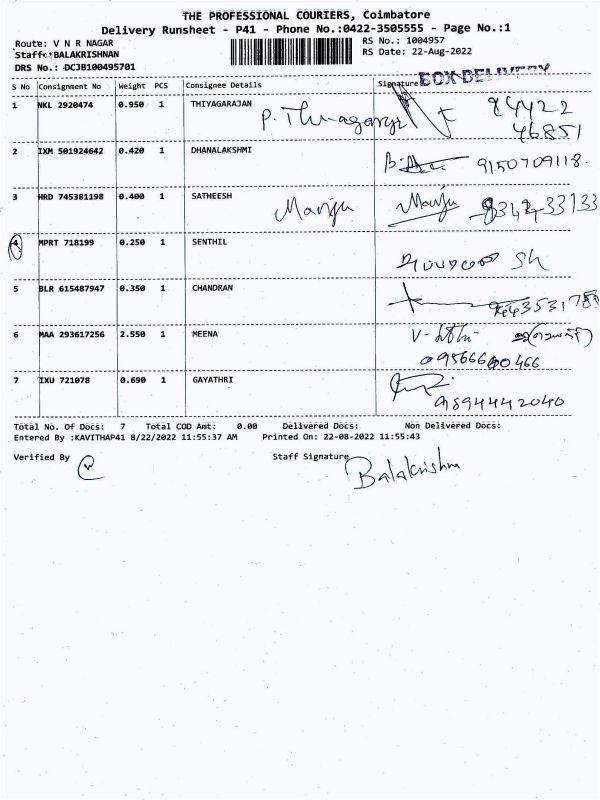 THE PROFESSIONAL COURIERS, Coimbatore
Delivery Runsheet - P41 - Phone No.:0422-3505555 - Page No.:1
Route: V N R NAGAR
RS No.: 1004957
Staff: BALAKRISHNAN
RS Date: 22-Aug-2022
DRS No.: DCJB100495701
BOX DELIVERY
S No Consignment No Weight PCS Consignee Details Signature
1 NKL 2920474 0.950 1 THIYAGARAJAN 94422
46851
2 IXM 501924642 0.420 1 DHANALAKSHMI 9150709118.
3 HRD 745381198 0.400 1 SATHEESH Manju Manju
4 MPRT 718199 0.250 1 SENTHIL
5 BLR 615487947 0.350 1 CHANDRAN
6 MAA 293617256 2.550 1 MEENA
7 IXU 721078 0.690 1 GAYATHRI
9894442040
Total No. Of Docs: 7 Total COD Amt: 0.00 Delivered Docs: Non Delivered Docs:
Entered By :KAVITHAP41 8/22/2022 11:55:37 AM Printed On: 22-08-2022 11:55:43
Verified By Staff Signature Balakrishna